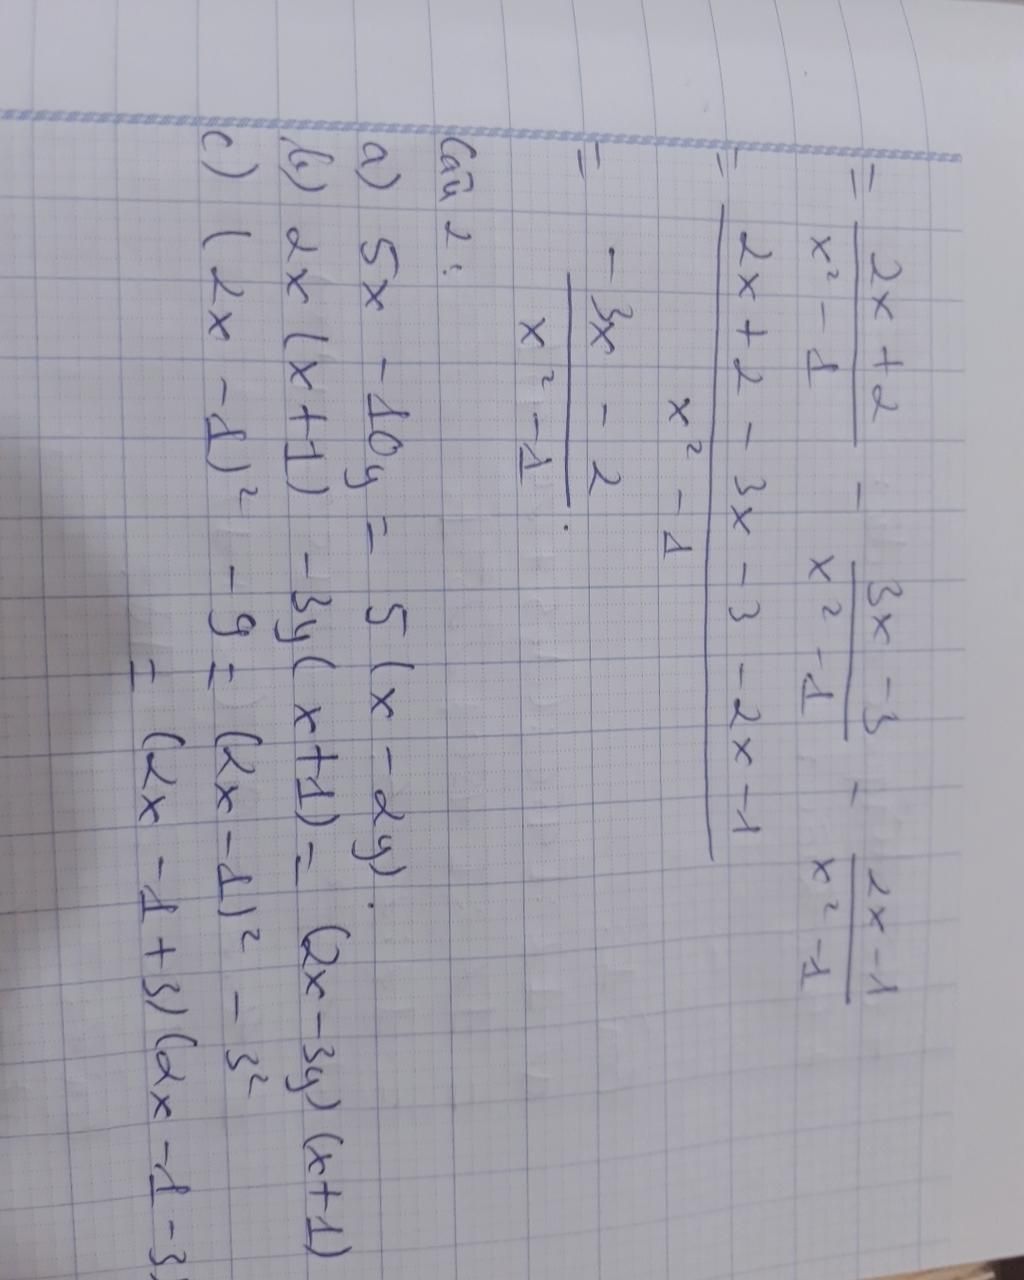 = (2x + 2)/(x² - 1) - (3x - 3)/(x² - 1) - (2x - 1)/(x² - 1)
= (2x + 2 - 3x - 3 - 2x - 1)/(x² - 1)
= (-3x - 2)/(x² - 1).
Câu 2:
a) 5x - 10y = 5(x - 2y).
b) 2x(x+1) - 3y(x+1) = (2x - 3y)(x+1)
c) (2x - 1)² - 9 = (2x - 1)² - 3²
= (2x - 1 + 3)(2x - 1 - 3)